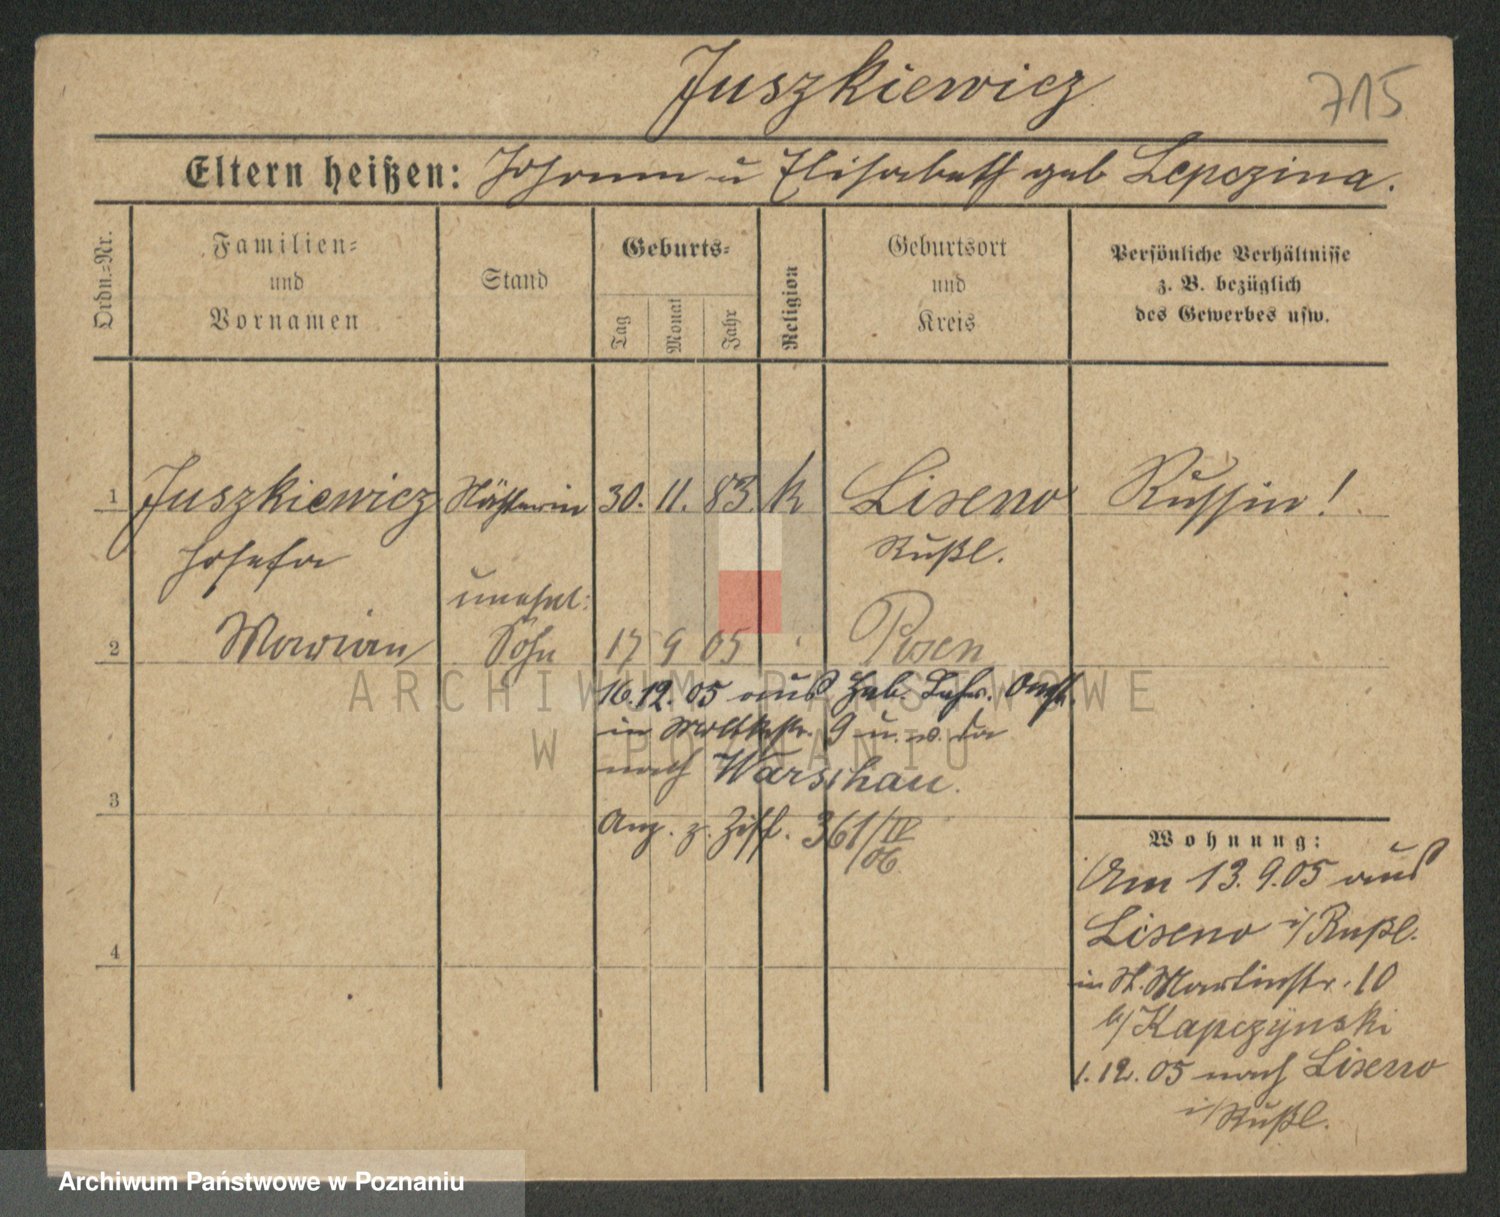 Juszkiewicz
715
Eltern heißen: Johann u Elisabeth geb Lepczina.
Ordn.-Nr.
Familien-
und
Vornamen
Stand
Geburts-
Tag
Monat
Jahr
Religion
Geburtsort
und
Kreis
Persönliche Verhältnisse
z. B. bezüglich
des Gewerbes usw.
1 Juszkiewicz Nähterin 30. 11. 83. k Liseno Russin!
Josefa Rußl.
unehel:
2 Marian Sohn 17 9 05 Posen
16.12.05 aus Heb. Lehr. Anst.
in Moltkestr. 9 u. v. da
nach Warschau.
3
Ang. z. Ziff. 361/IV
/06.
4
Wohnung:
Am 13.9.05 aus
Liseno i/Rußl.
in St. Martinstr. 10
b/Kapczynski
1.12.05 nach Liseno
i/Rußl.
ARCHIWUM PAŃSTWOWE
W POZNANIU
Archiwum Państwowe w Poznaniu